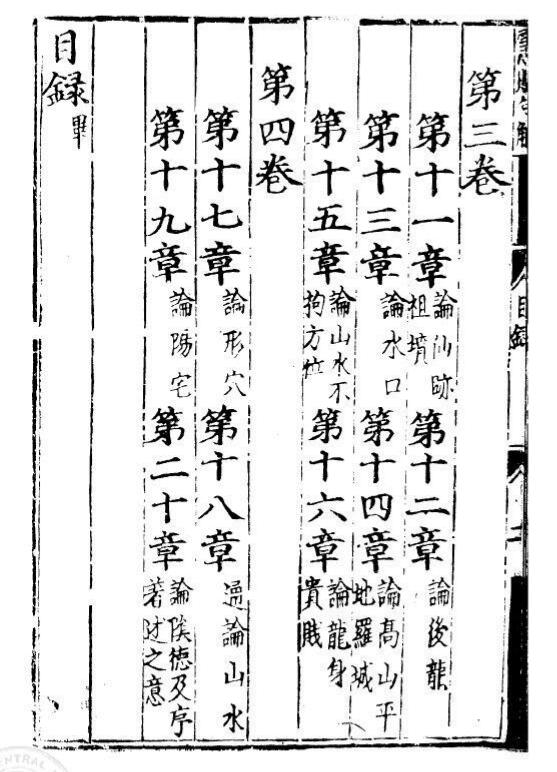 目録
第三卷
第十一章 論仙跡祖墳 第十二章 論後龍
第十三章 論水口 第十四章 論髙山平地羅城
第十五章 論山水不拘方位 第十六章 論龍身貴賤
第四卷
第十七章 論形穴 第十八章 通論山水
第十九章 論陽宅 第二十章 論陰德及序著述之意
目録畢